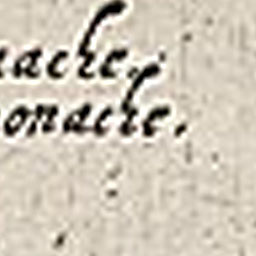 nache.
onache.